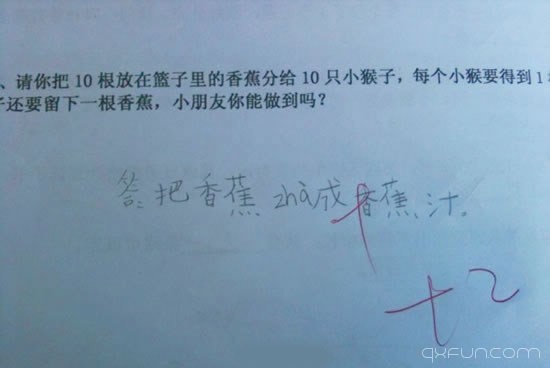 、请你把10根放在篮子里的香蕉分给10只小猴子，每个小猴要得到1
子还要留下一根香蕉，小朋友你能做到吗？
答：把香蕉zhà成香蕉汁。
+2
qxfun.com